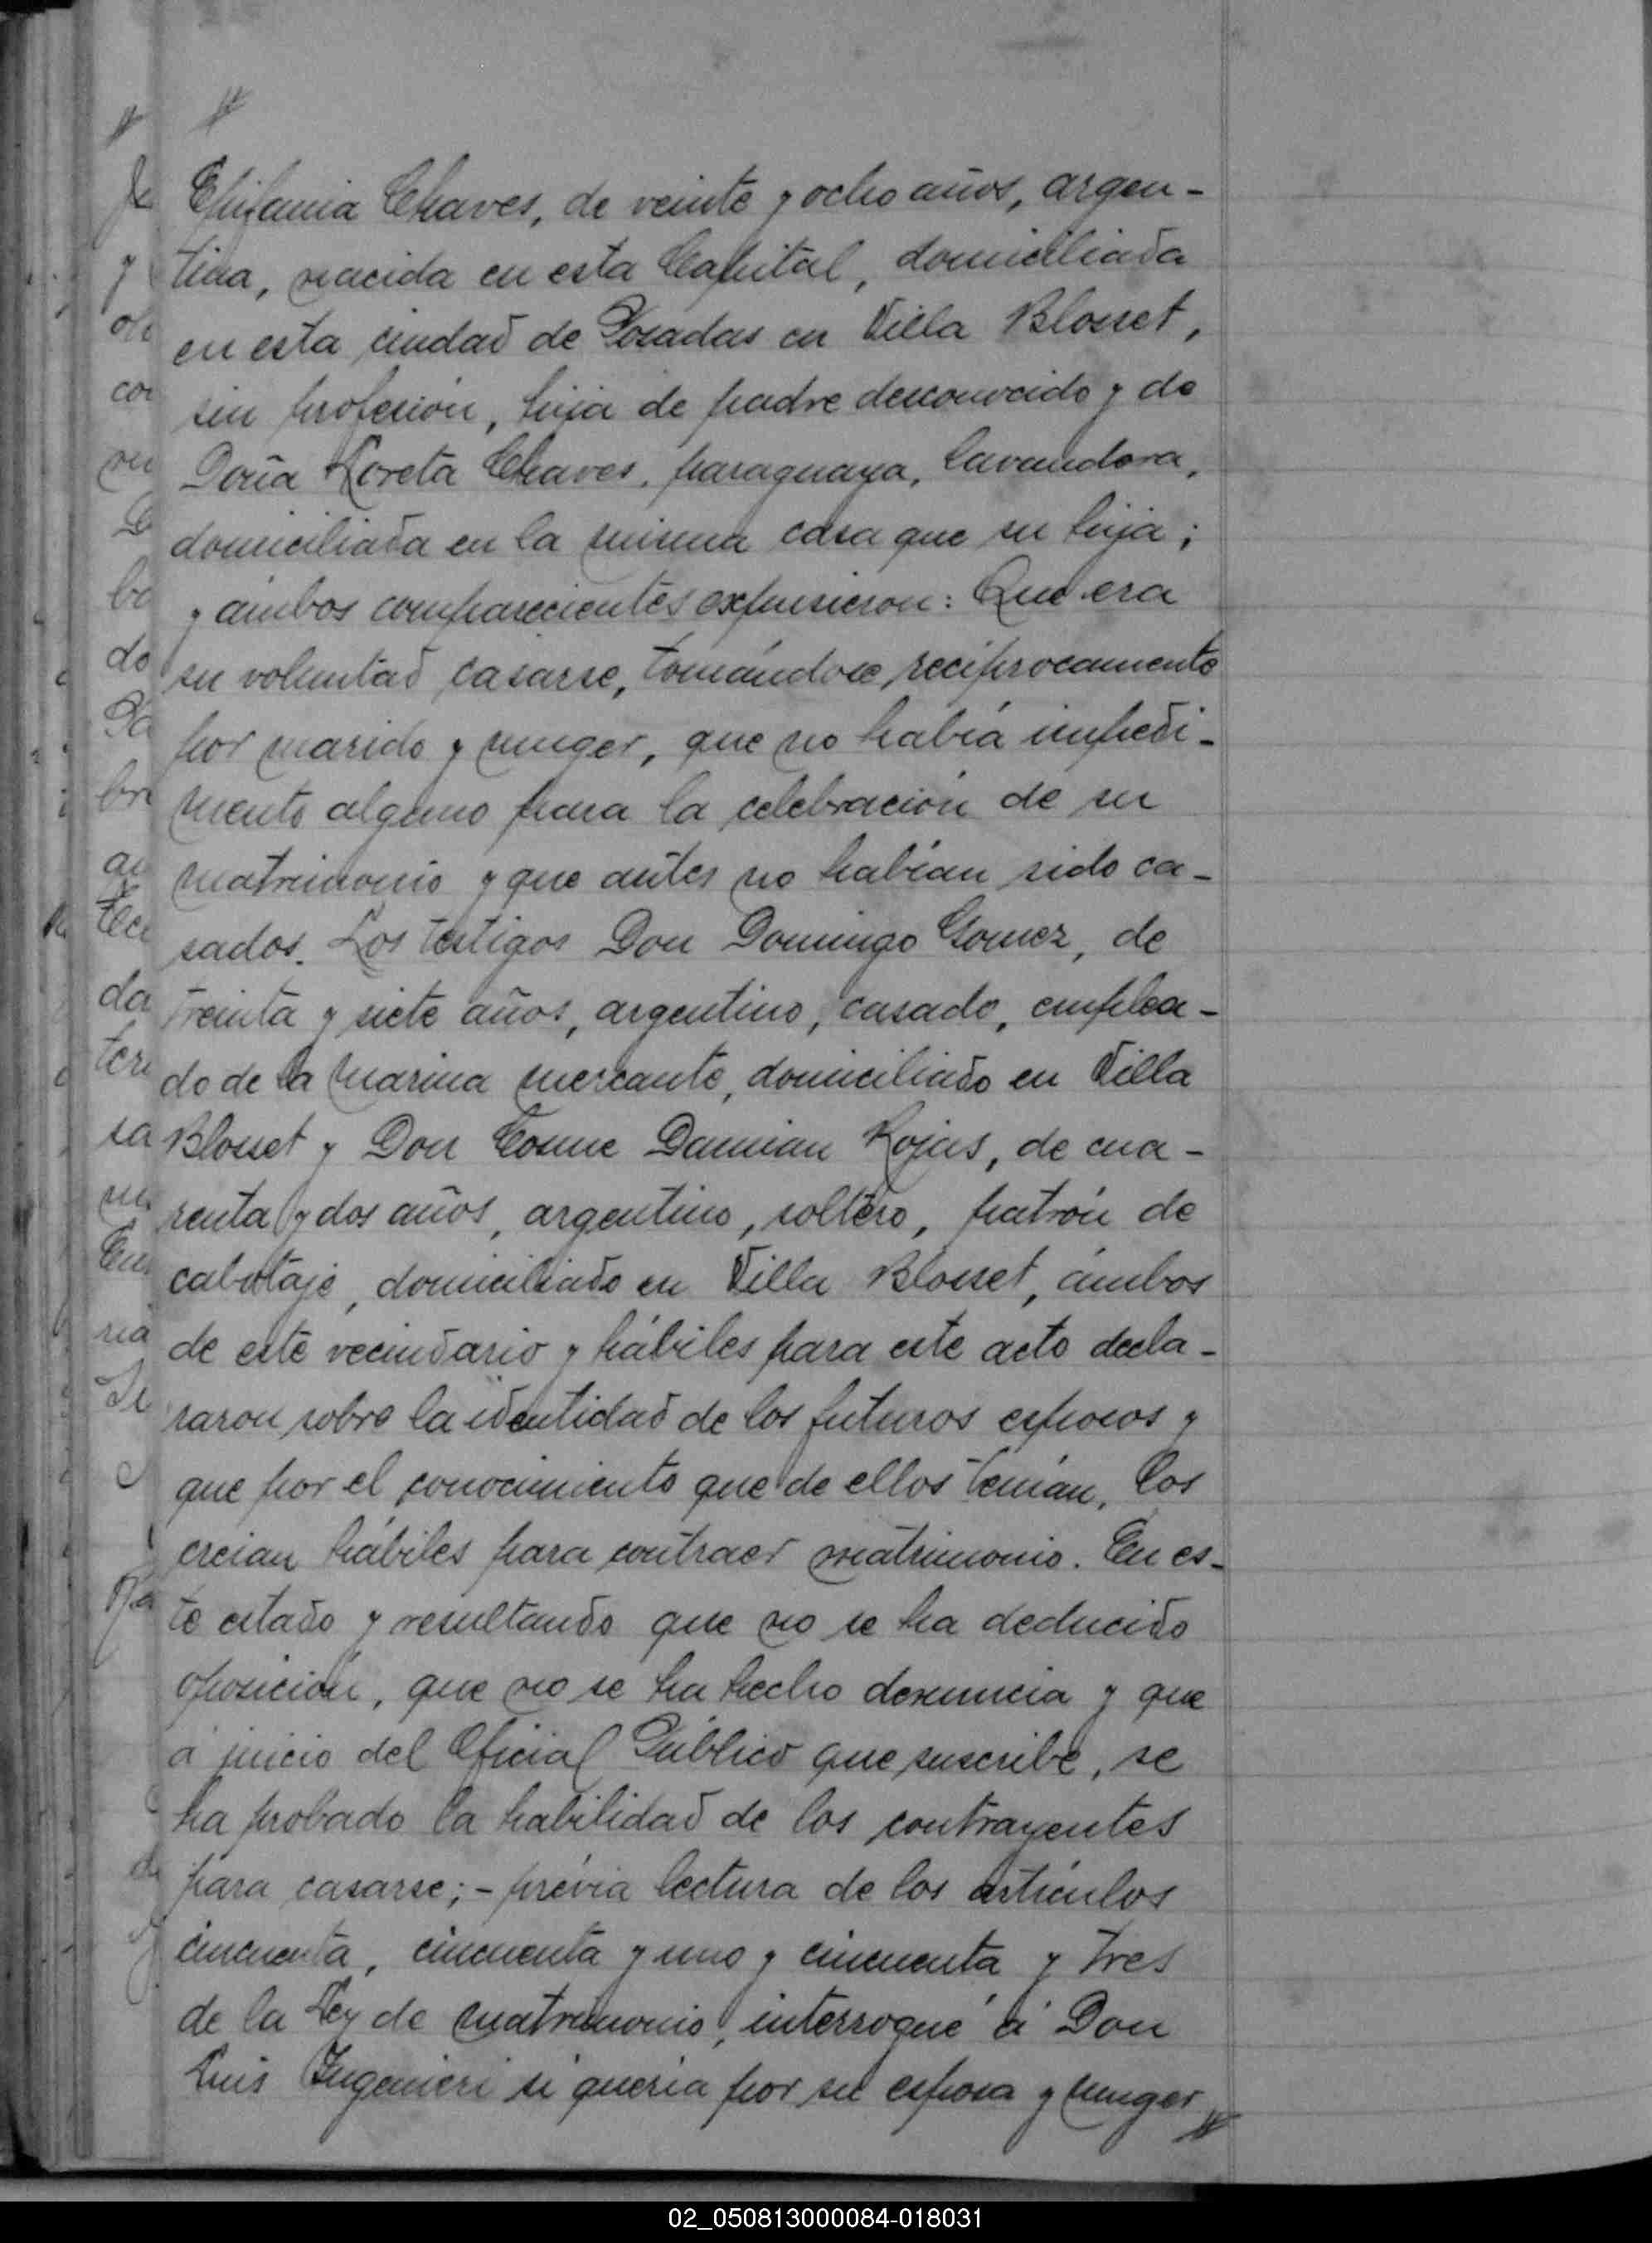 Epifania Chaves, de veinte y ocho años, argen-
tina, nacida en esta Capital, domiciliada
en esta ciudad de Posadas en Villa Blosset,
sin profesión, hija de padre desconocido y de
Doña Loreta Chaves, paraguaya, lavandera,
domiciliada en la misma casa que su hija;
y ámbos comparecientes expusieron: Que era
su voluntad casarse, tomándose recíprocamente
por marido y muger, que no había impedi-
mento alguno para la celebración de su
matrimonio y que antes no habían sido ca-
sados. Los testigos Don Domingo Gomez, de
treinta y siete años, argentino, casado, emplea-
do de la marina mercante, domiciliado en Villa
Blosset y Don Cosme Damian Rojas, de cua-
renta y dos años, argentino, soltero, patrón de
cabotaje, domiciliado en Villa Blosset, ámbos
de este vecindario y hábiles para este acto decla-
raron sobre la identidad de los futuros esposos y
que por el conocimiento que de ellos tenían, los
creian hábiles para contraer matrimonio. En es-
te estado y resultando que no se ha deducido
oposición, que no se ha hecho denuncia y que
á juicio del Oficial Público que suscribe, se
ha probado la habilidad de los contrayentes
para casarse; - prévia lectura de los artículos
cincuenta, cincuenta y uno y cincuenta y tres
de la Ley de matrimonio, interrogué á Don
Luis Ingenieri si quería por su esposa y muger
02_050813000084-018031